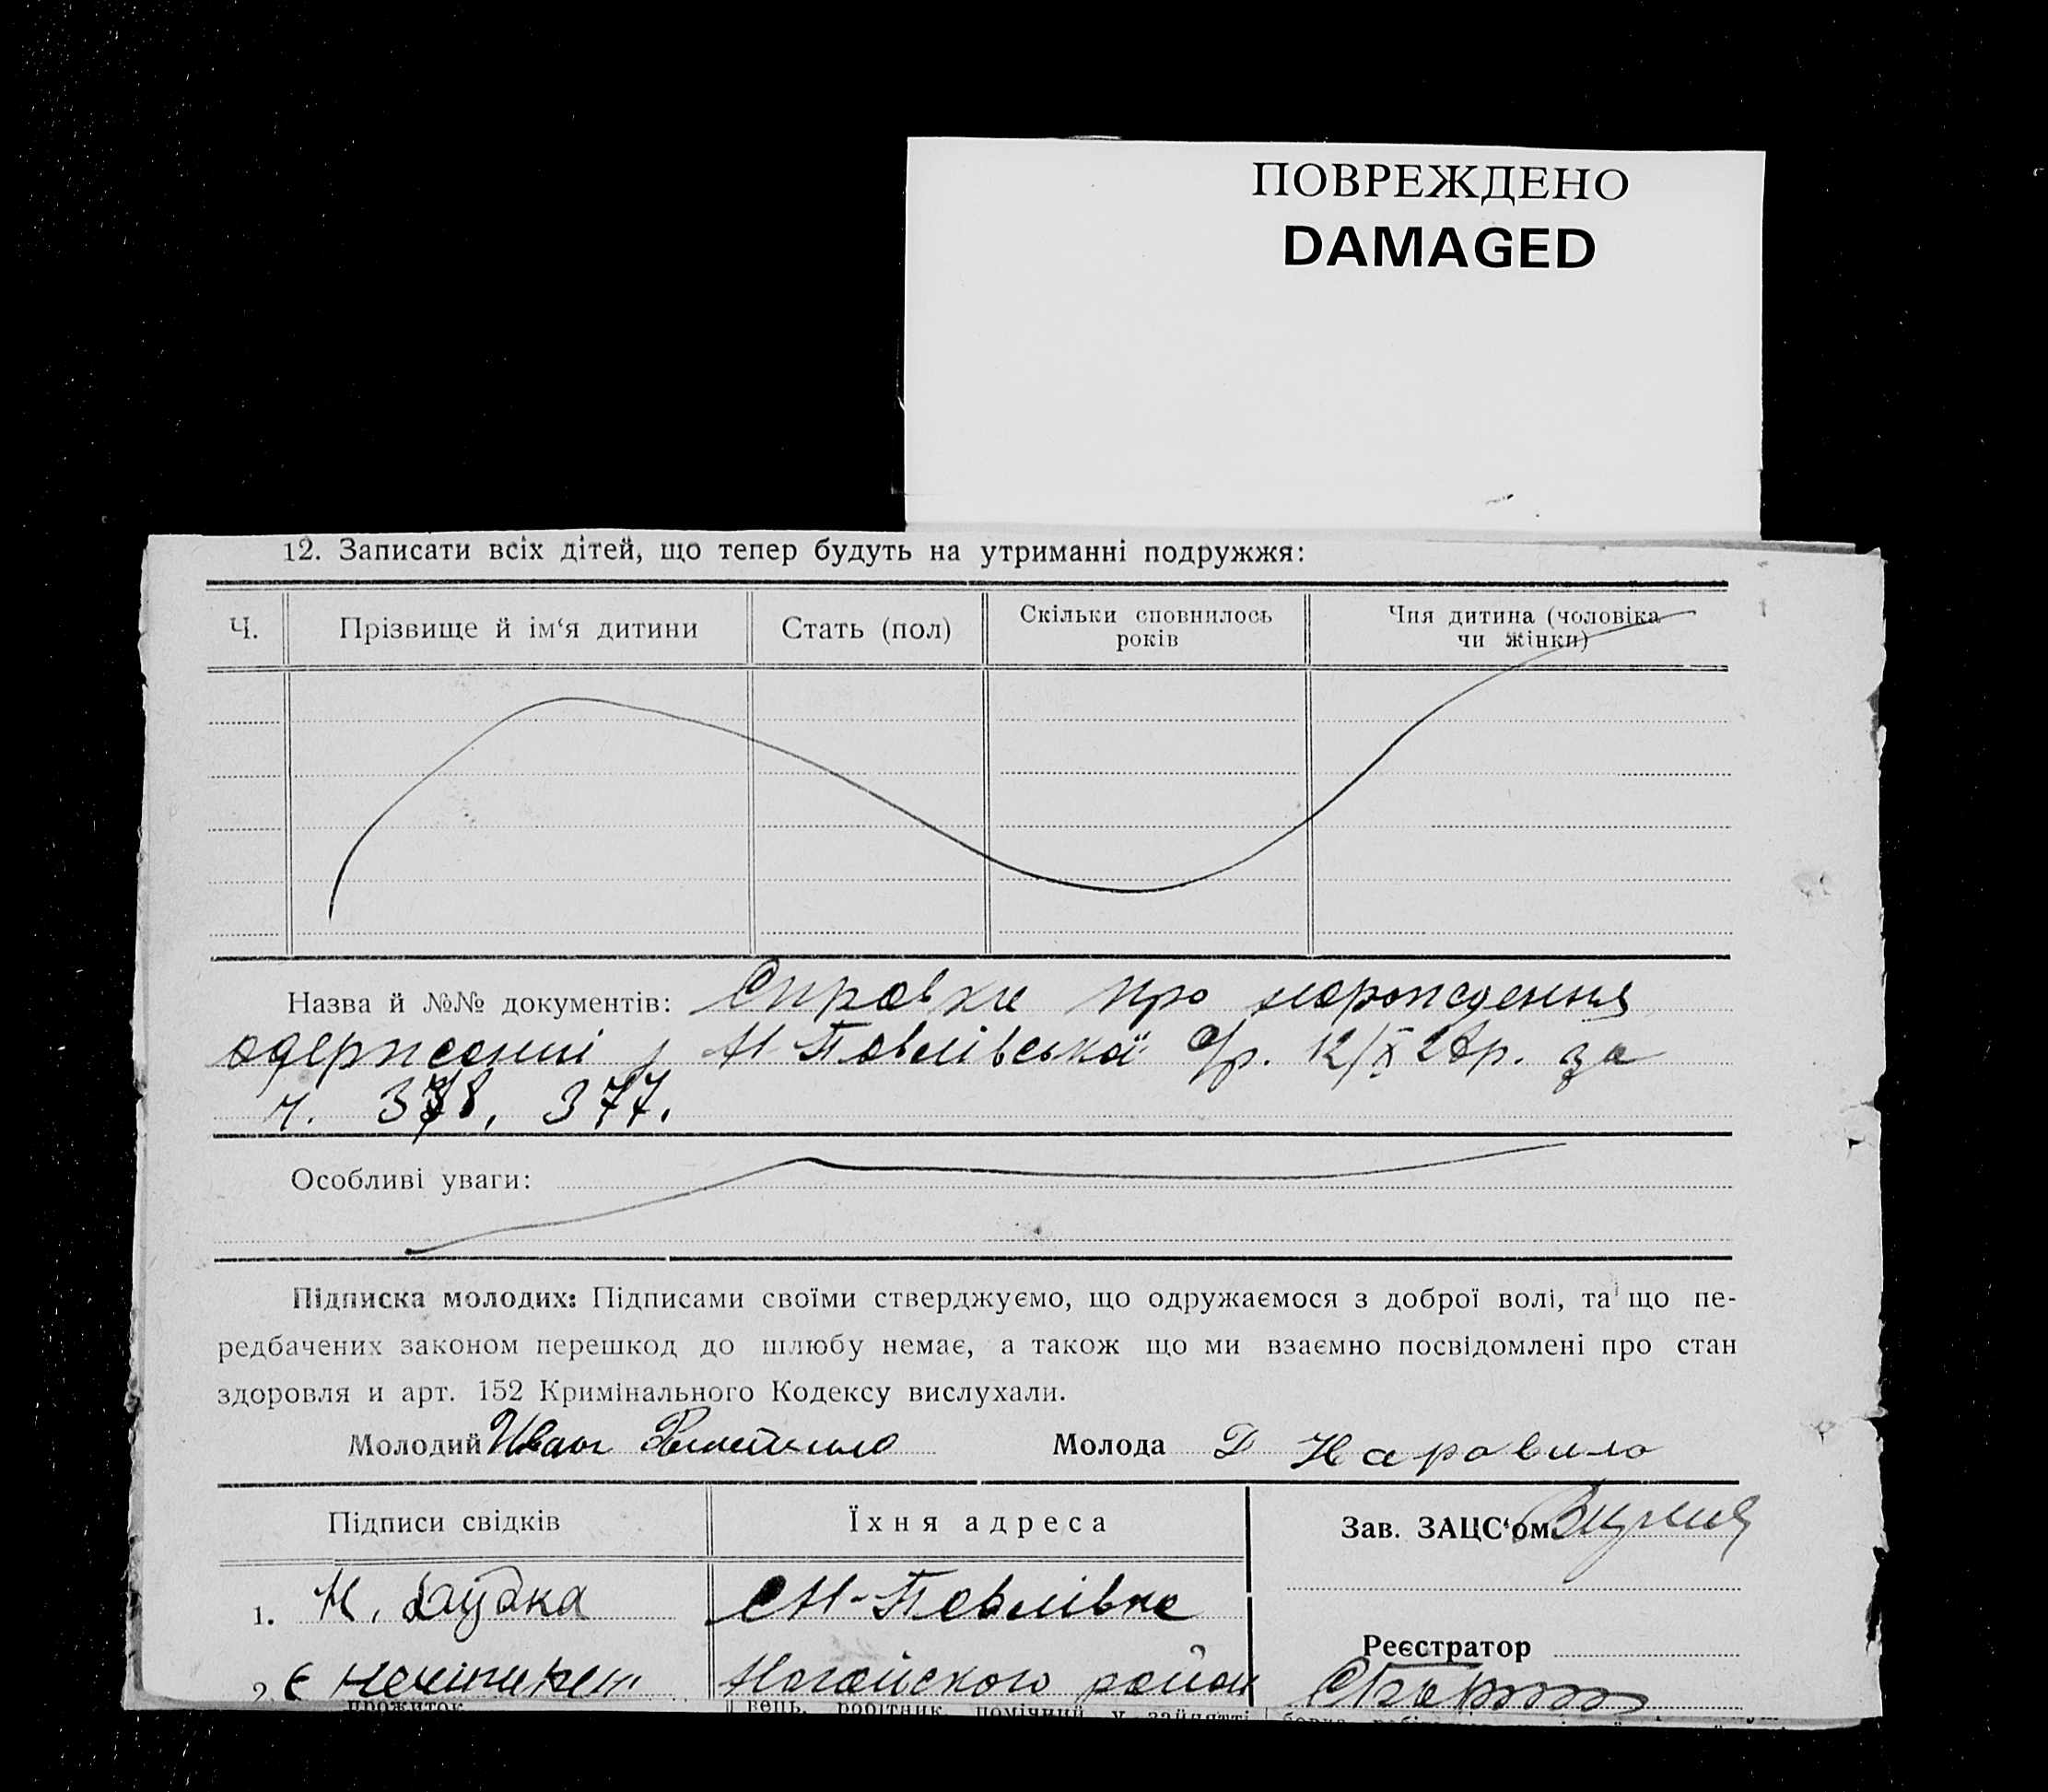 ПОВРЕЖДЕНО
DAMAGED
12. Записати всіх дітей, що тепер будуть на утриманні подружжя:
Ч. Прізвище й ім‘я дитини Стать (пол) Скільки сповнилось років Чия дитина (чоловіка чи жінки)
Назва й №№ документів: Справки про народження
одержані з Н-Павлівської с/р. 12/X 28р. за
ч. 378, 377.
Особливі уваги:
Підписка молодих: Підписами своїми стверджуємо, що одружаємося з доброї волі, та що пе-
редбачених законом перешкод до шлюбу немає, а також що ми взаємно посвідомлені про стан
здоровля и арт. 152 Кримінального Кодексу вислухали.
Молодий Иван Молода Д
Підписи свідків Їхня адреса Зав. ЗАЦС‘ом
1. Н-Павлівка
Реєстратор
2. Є Ногайського район
прожиток
вець, робітник помічний у зайнятті